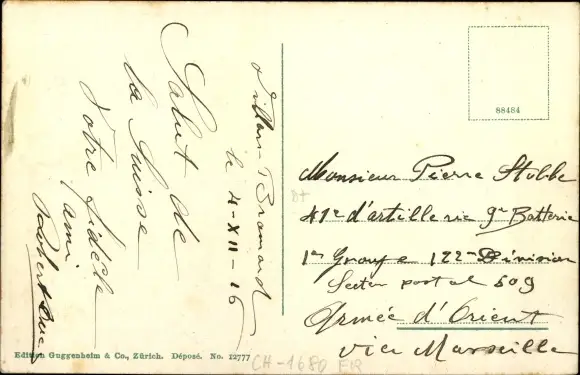 Villars-Bramard
le 4-XII-16
Salut de
la Suisse
Votre fidèle
ami
Robert
88484
Monsieur Pierre Stobbe
41e d'artillerie 9e Batterie
1er Groupe 122me Division
Secteur postal 509
Armée d'Orient
via Marseille
Edition Guggenheim & Co., Zürich. Déposé. No. 12777
CH-1680 FR